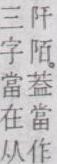 阡陌。葢當作
三字當在从